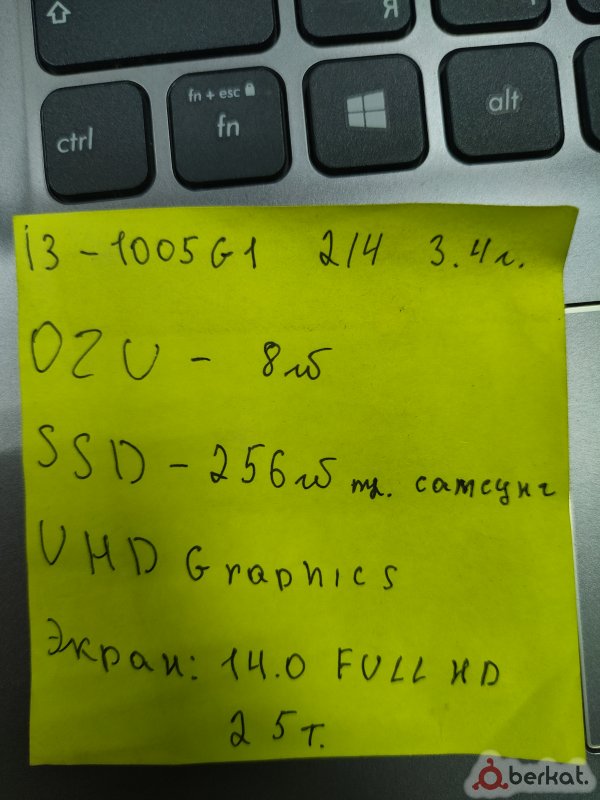 Я
ctrl
fn + esc
fn
alt
i3 - 1005G1 2/4 3.4г.
OZU - 8гб
SSD - 256гб тр. самсунг
UHD Graphics
Экран: 14.0 FULL HD
25т.
berkat.